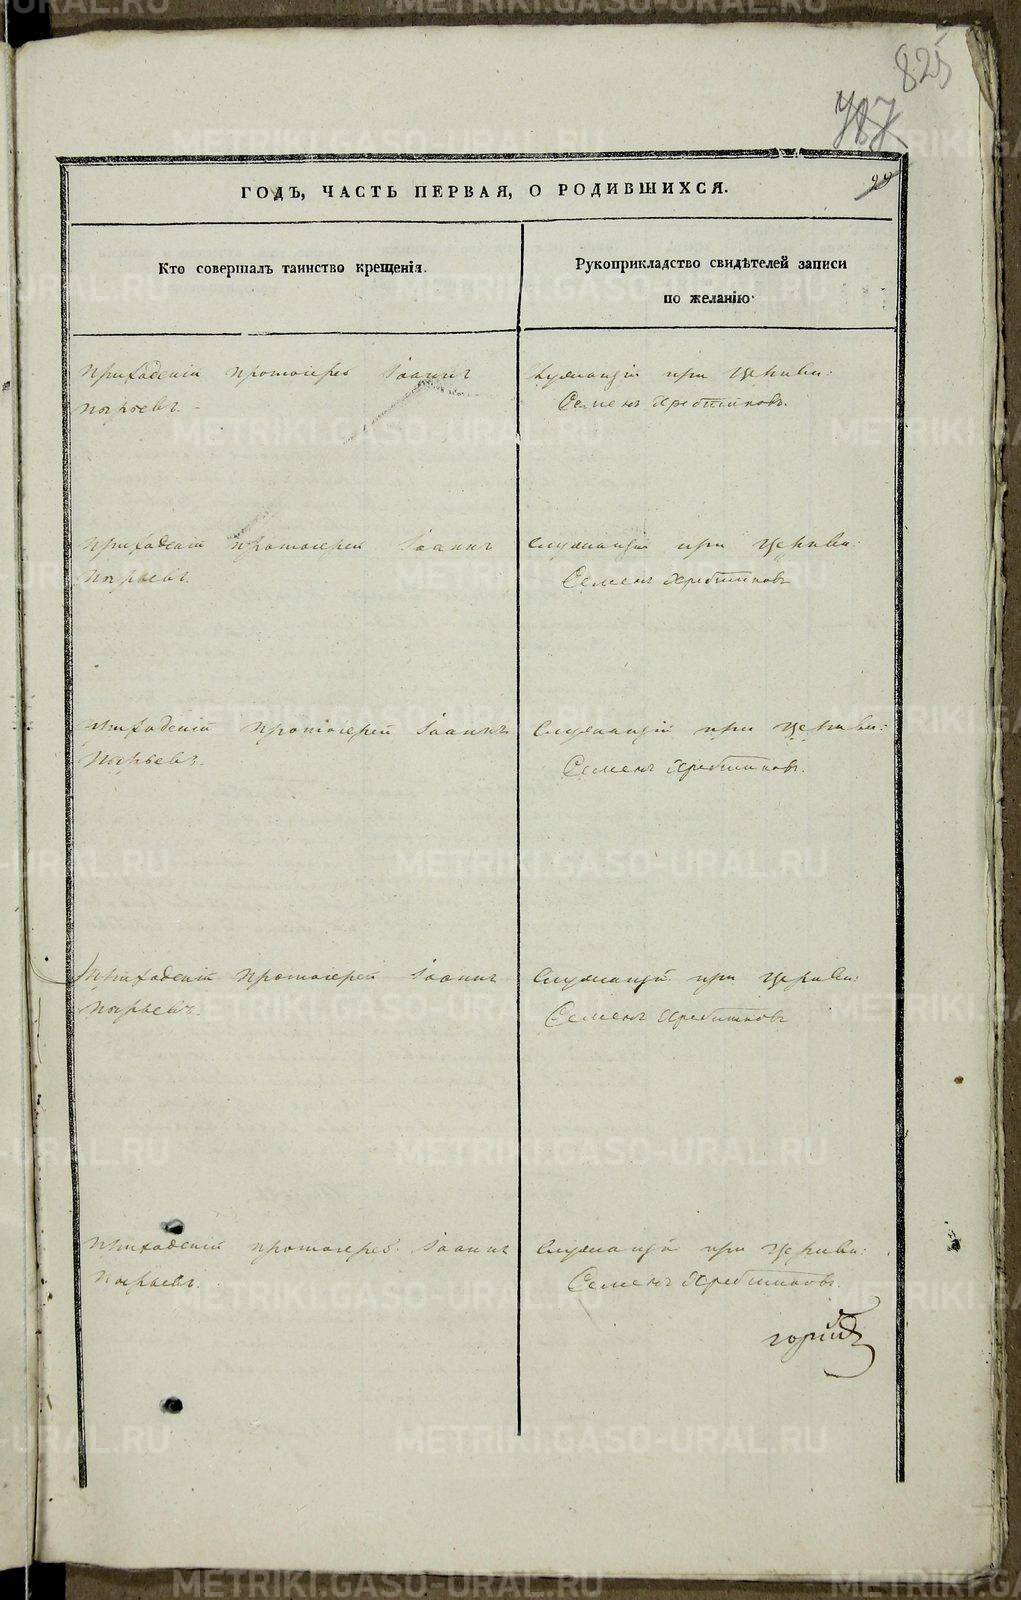 825
787
29
ГОДЪ, ЧАСТЬ ПЕРВАЯ, О РОДИВШИХСЯ.
Кто совершалъ таинство крещенія.
Рукоприкладство свидѣтелей записи
по желанію
Приходскій протоіерей Іоаннъ
Пырьевъ.
Служащій при церкви:
Семенъ Хребтиковъ.
Приходскій протоіерей Іоаннъ
Пырьевъ.
Служащій при церкви:
Семенъ Хребтиковъ
Приходскій протоіерей Іоаннъ
Пырьевъ.
Служащій при церкви:
Семенъ Хребтиковъ.
Приходскій протоіерей Іоаннъ
Пырьевъ.
Служащій при церкви:
Семенъ Хребтиковъ
Приходскій протоіерей Іоаннъ
Пырьевъ.
Служащій при церкви:
Семенъ Хребтиковъ.
METRIKI.GASO-URAL.RU